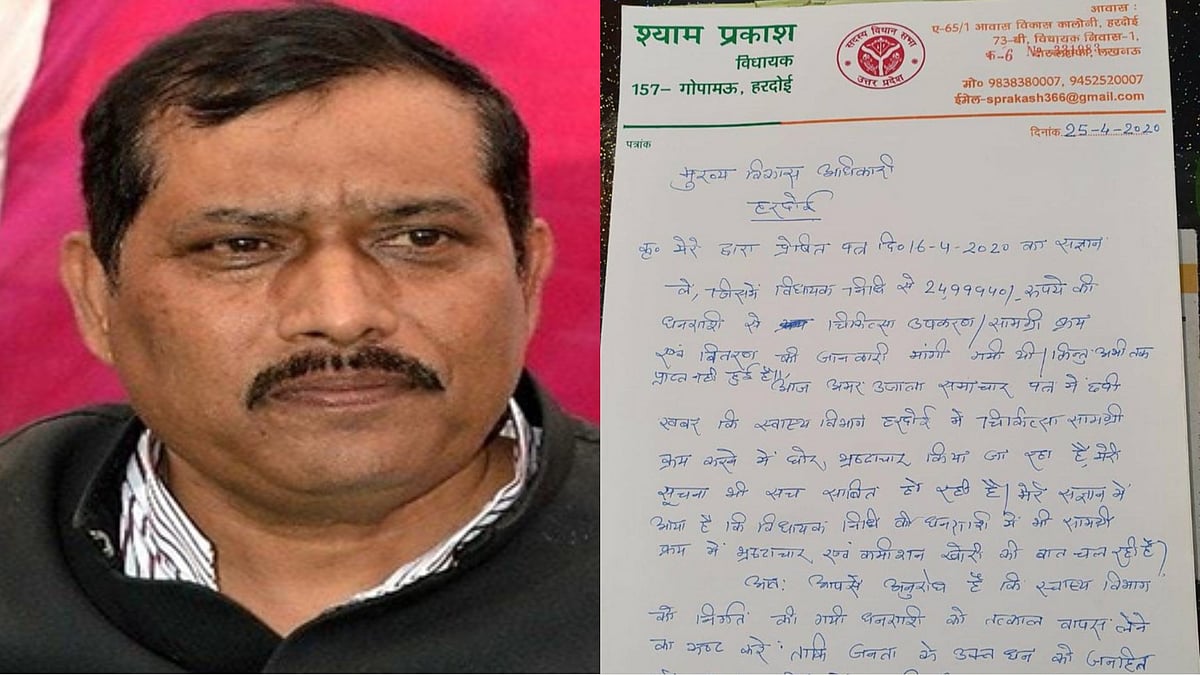 श्याम प्रकाश
विधायक
157– गोपामऊ, हरदोई
सदस्य विधान सभा
उत्तर प्रदेश
आवास :
ए-65/1 आवास विकास कालोनी, हरदोई
73-बी, विधायक निवास-1,
लखनऊ
मो० 9838380007, 9452520007
ईमेल-sprakash366@gmail.com
पत्रांक
दिनांक 25-4-2020
मुख्य विकास अधिकारी
हरदोई
कृ० मेरे द्वारा प्रेषित पत्र दि० 16-4-2020 का संज्ञान
ले, जिसमें विधायक निधि से 2499940/- रूपये की
धनराशी से चिकित्सा उपकरण/सामग्री क्रय
एवं वितरण की जानकारी मांगी गयी थी। किन्तु अभी तक
प्राप्त नही हुई है।
आज अमर उजाला समाचार पत्र में छपी
खबर कि स्वास्थ्य विभाग हरदोई में चिकित्सा सामग्री
क्रय करने में घोर, भ्रष्टाचार किया जा रहा है, मेरी
सूचना भी सच साबित हो रही है। मेरे संज्ञान में
आया है कि विधायक निधि की धनराशी में भी सामग्री
क्रय में भ्रष्टाचार एवं कमीशन खोरी की बात चल रही है।
अतः आपसे अनुरोध है कि स्वास्थ्य विभाग
को निर्गत की गयी धनराशी को तत्काल वापस लेने
का कष्ट करें। ताकि जनता के उक्त धन को जनहित